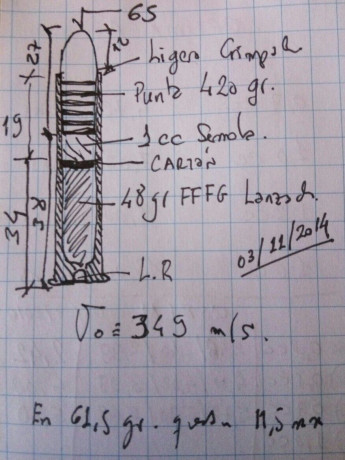 65
Ligero Crimpado
Punta 420 gr.
1 cc Semola.
CARTÓN
48 gr FFFG Lanzada.
L.R
27
12
19
34
58
03/11/2014
Vo = 349 m/s.
En 61,5 gr. 11,5 mm